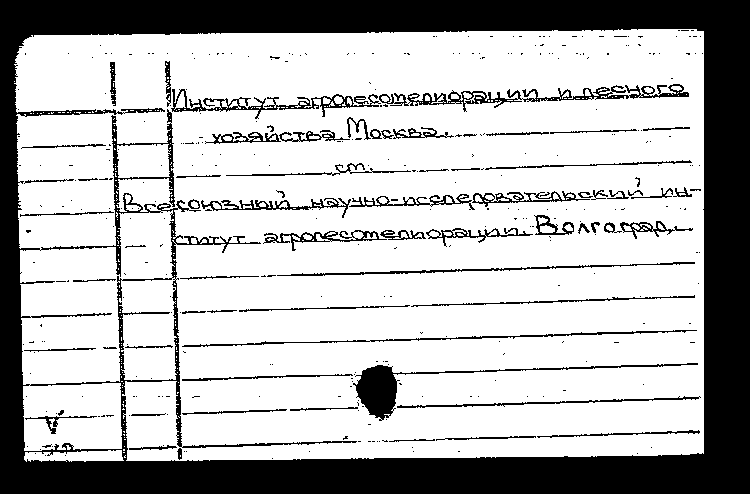 Институт агролесомелиорации и лесного
хозяйства. Москва.
см.
Всесоюзный научно-исследовательский ин-
ститут агролесомелиорации. Волгоград.
V